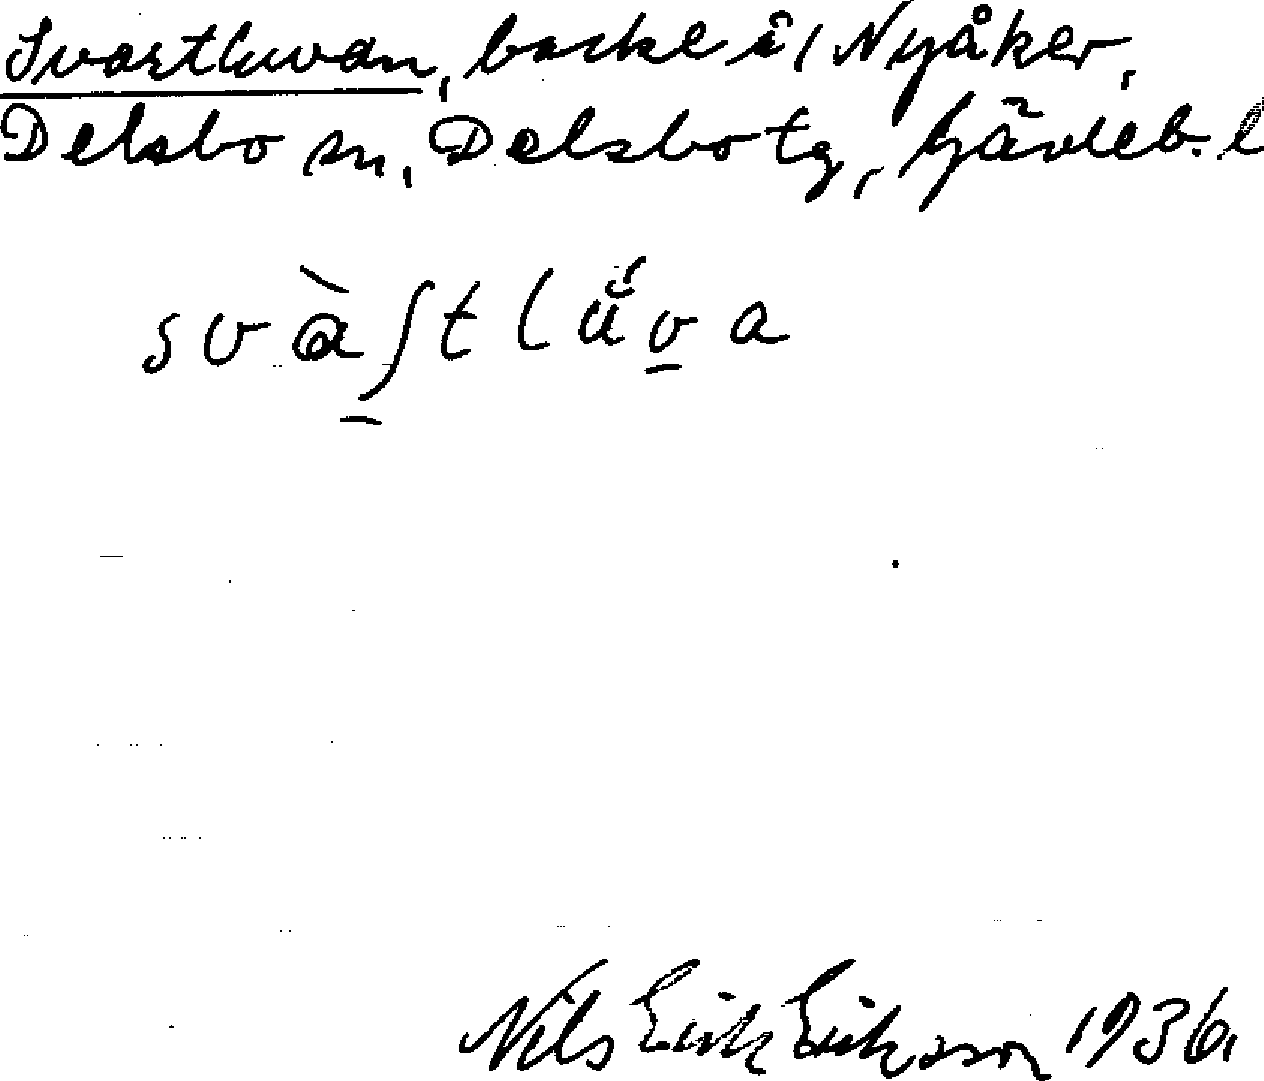 Svartluvan, backe i Nyåker,
Delsbo sn, Delsbo tg, Gävleb. l
Nils Erik Eriksson 1936.